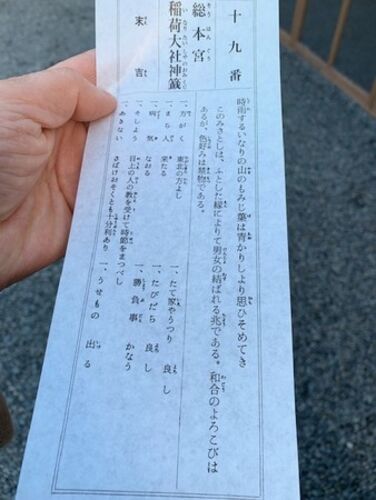 十九番
総本宮
稲荷大社神籤
末吉
時雨するいなりの山のもみじ葉は青かりしより思ひそめてき
このみさとしは、ふとした縁によりて男女の結ばれる兆である。和合のよろこびは
あるが、色好みは禁物である。
一、方がく 東北の方よし
一、まち人 来たる
一、病気 なおる
一、そしよう 目上の人の教を受けて時節をまつべし
一、あきない さばけおそくとも十分利あり
一、たて家やうつり 良し
一、たびだち 良し
一、勝負事 かなう
一、うせもの 出る